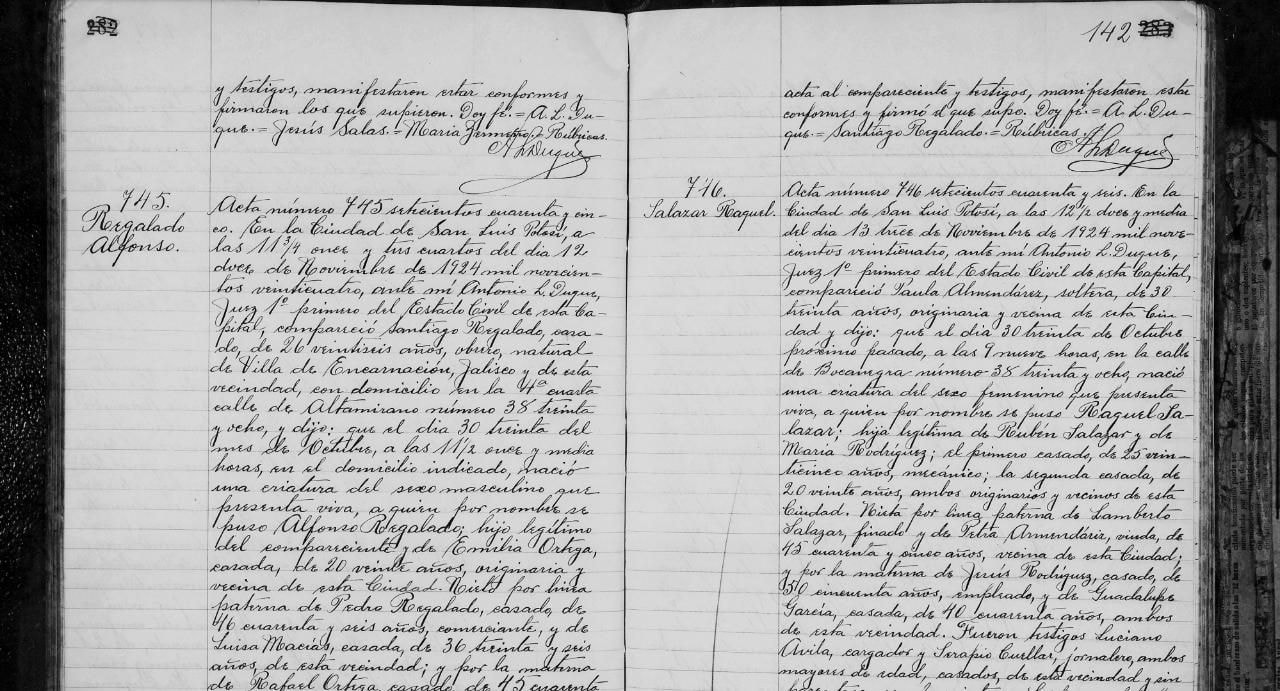 282
y testigos, manifestaron estar conformes y
firmaron los que supieron. Doy fé. = A. L. Du-
que. = Jesús Salas. = María Rúbricas.
A L Duque
745.
Regalado
Alfonso.
Acta número 745 setecientos cuarenta y cin-
co. En la Ciudad de San Luis Potosí, a
las 11 3/4 once y tres cuartos del dia 12
doce de Noviembre de 1924 mil novecien-
tos veinticuatro, ante mí Antonio L. Duque,
Juez 1º primero del Estado Civil de esta Ca-
pital, compareció Santiago Regalado, casa-
do, de 26 veintiseis años, obrero, natural
de Villa de Encarnación, Jalisco y de esta
vecindad, con domicilio en la 4ª cuarta
calle de Altamirano número 38 treinta
y ocho, y dijo: que el dia 30 treinta del
mes de Octubre, a las 11 1/2 once y media
horas, en el domicilio indicado, nació
una criatura del sexo masculino que
presenta viva, a quien por nombre se
puso Alfonso Regalado; hijo legítimo
del compareciente y de Emilia Ortega,
casada, de 20 veinte años, originaria y
vecina de esta Ciudad. Nieto por línea
paterna de Pedro Regalado, casado, de
46 cuarenta y seis años, comerciante, y de
Luisa Macías, casada, de 36 treinta y seis
años, de esta vecindad; y por la materna
de Rafael Ortega, casado, de 45 cuarenta
142 283
acta al compareciente y testigos, manifestaron estar
conformes y firmó el que supo. Doy fé. = A. L. Du-
que. = Santiago Regalado. = Rúbricas.
A L Duque
746.
Salazar Raquel.
Acta número 746 setecientos cuarenta y seis. En la
Ciudad de San Luis Potosí, a las 12 1/2 doce y media
del dia 13 trece de Noviembre de 1924 mil nove-
cientos veinticuatro, ante mí Antonio L. Duque,
Juez 1º primero del Estado Civil de esta Capital,
compareció Paula Almendárez, soltera, de 30
treinta años, originaria y vecina de esta Ciu-
dad y dijo: que el dia 30 treinta de Octubre
próximo pasado, a las 9 nueve horas, en la calle
de Bocanegra número 38 treinta y ocho, nació
una criatura del sexo femenino que presenta
viva, a quien por nombre se puso Raquel Sa-
lazar; hija legítima de Rubén Salazar y de
María Rodríguez; el primero casado, de 25 vein-
ticinco años, mecánico; la segunda casada, de
20 veinte años, ambos originarios y vecinos de esta
Ciudad. Nieta por línea paterna de Lamberto
Salazar, finado y de Petra Armendáriz, viuda, de
45 cuarenta y cinco años, vecina de esta Ciudad;
y por la materna de Jesús Rodríguez, casado, de
50 cincuenta años, empleado, y de Guadalupe
García, casada, de 40 cuarenta años, ambos
de esta vecindad. Fueron testigos Luciano
Avila, cargador y Serapio Cuellar, jornalero, ambos
mayores de edad, casados, de esta vecindad y sin